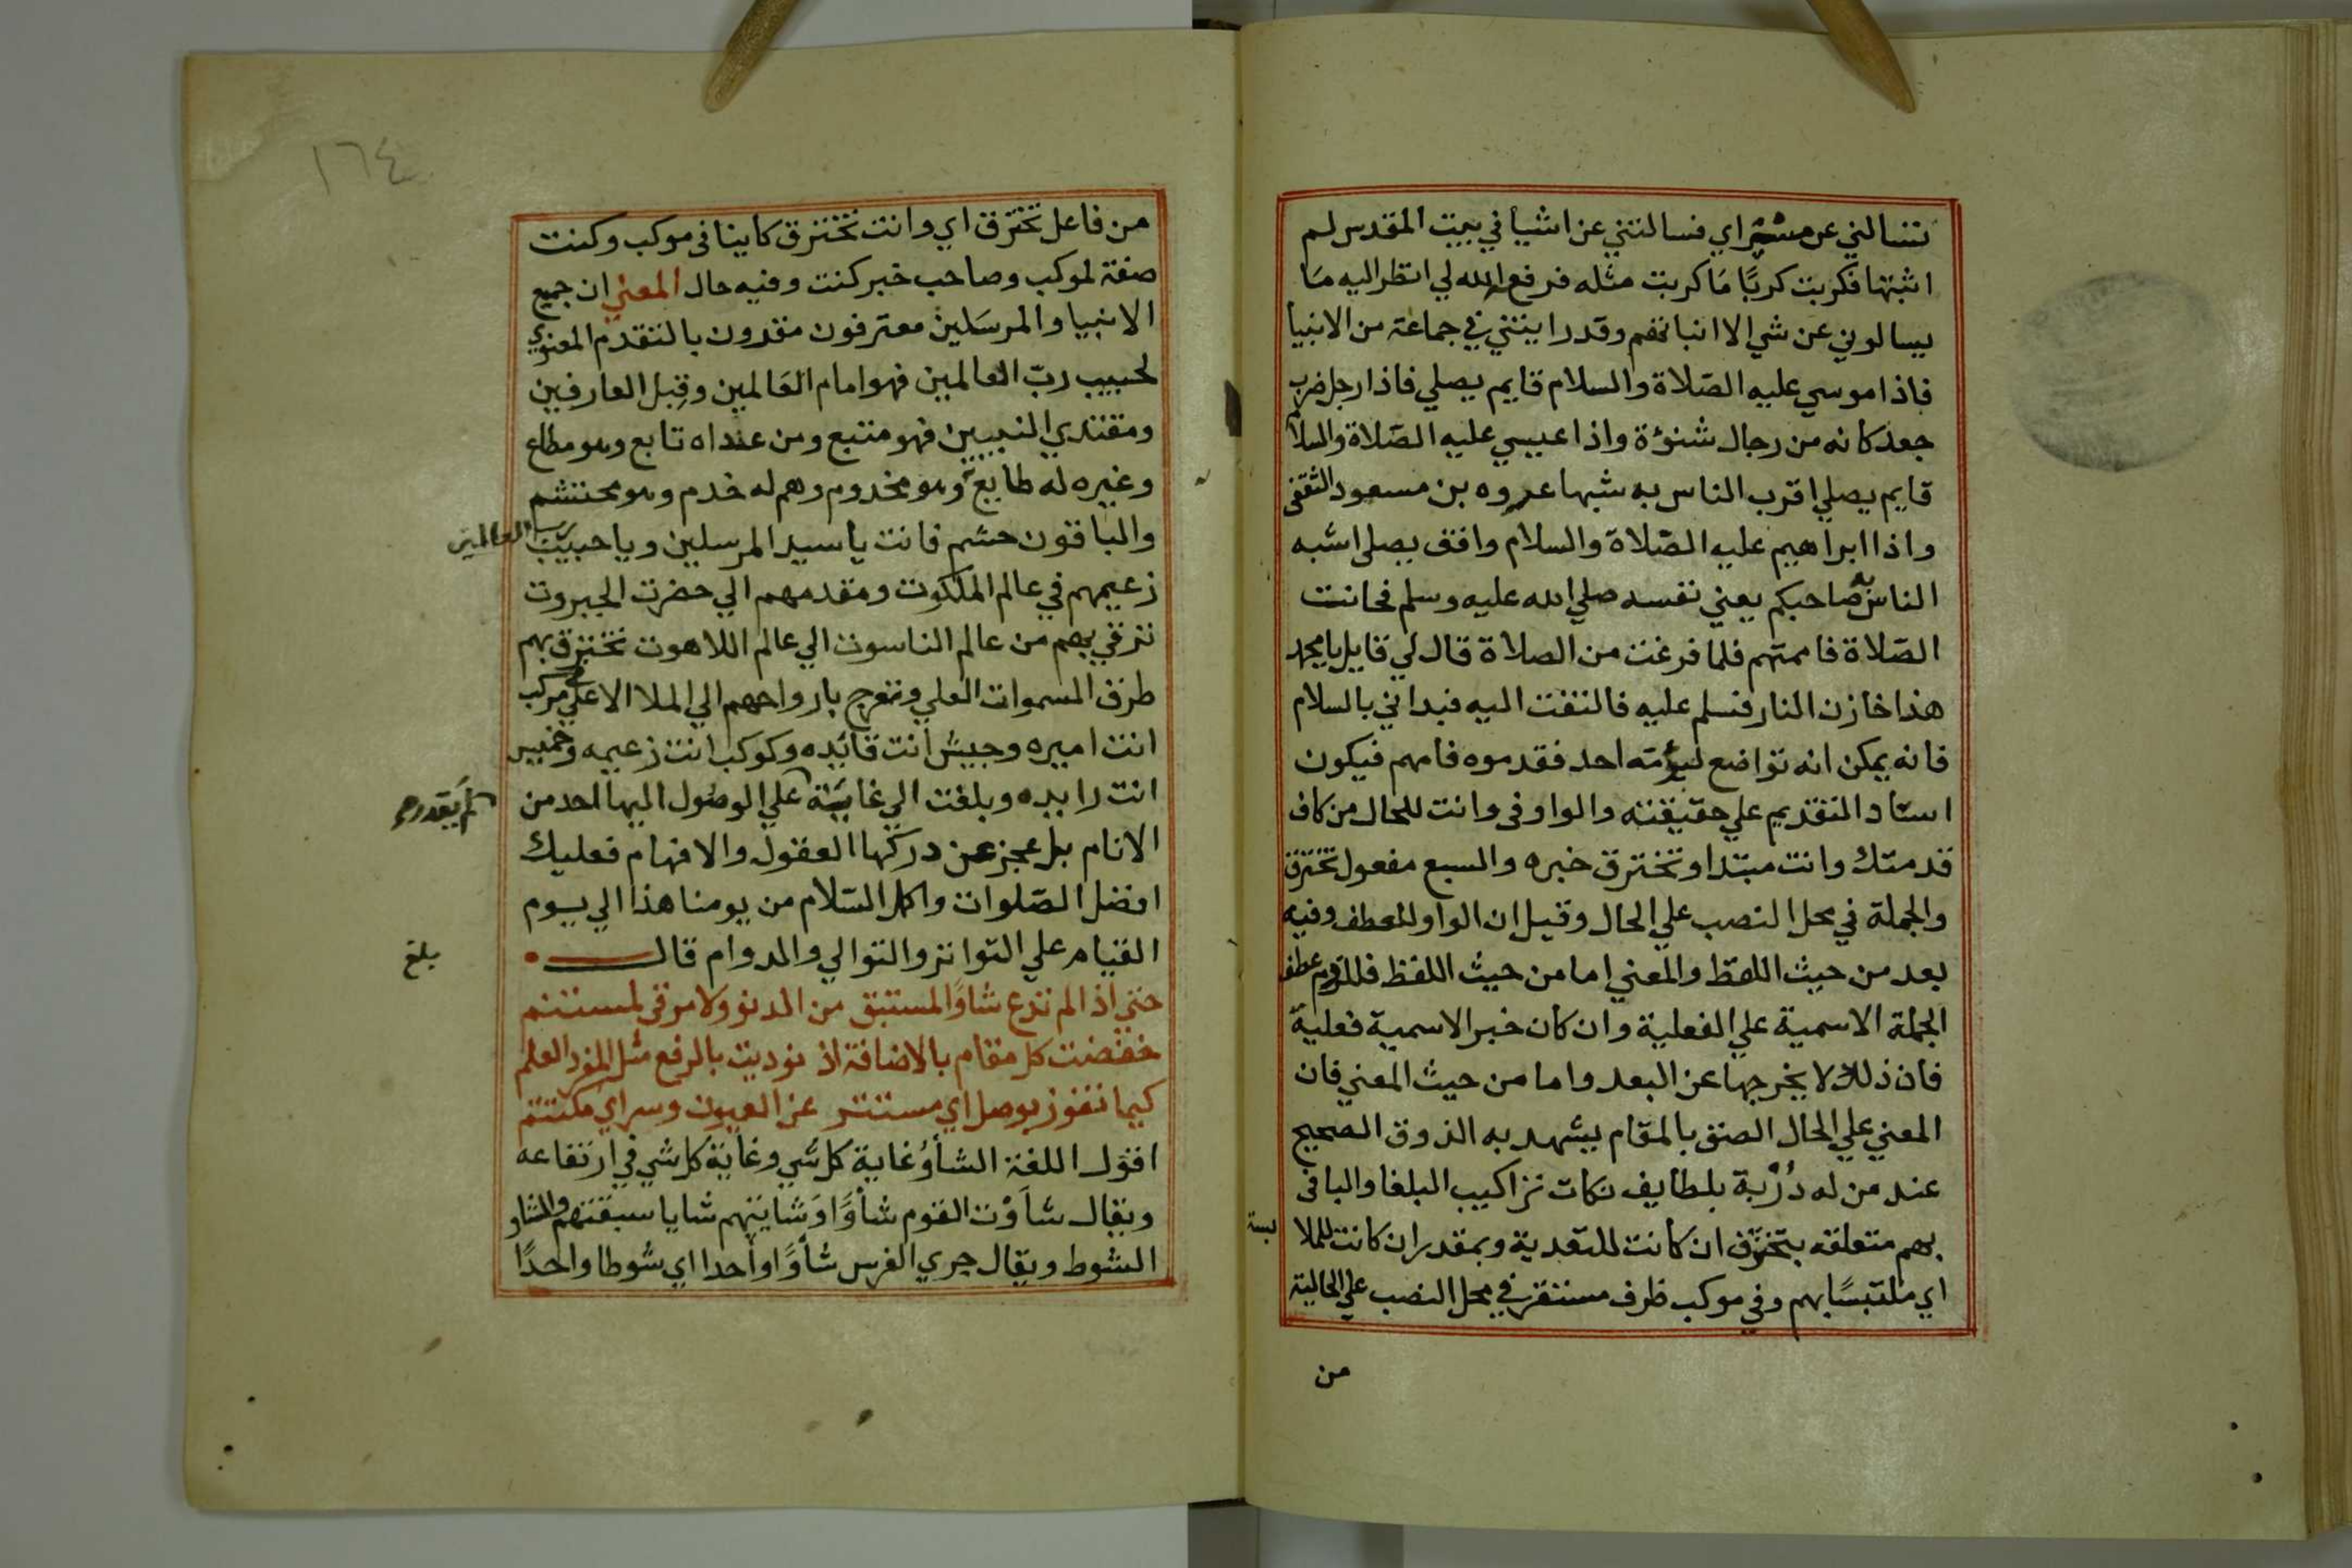 تسالني عن مسراي فسالتني عن اشيا في بيت المقدس لم
اثبتها فكربت كربًا مَا كربت مثله فرفع الله لي انظر اليه مَا
يسالوني عن شي الا انباتهم وقد رايتني في جماعة من الانبيا
فاذا موسي عليه الصّلاة والسلام قايم يصلي فاذا رجل ضرب
جعد كانه من رجال شنؤة واذا عيسي عليه الصّلاة والسلام
قايم يصلي اقرب الناس به شبها عروه بن مسعود الثقفى
واذا ابراهيم عليه الصّلاة والسلام واقف يصلى اشبه
الناس به صاحبكم يعني نفسه صلي الله عليه وسلم فحانت
الصّلاة فاممتهم فلما فرغت من الصلاة قال لي قايل يا محمد
هذا خازن النار فسلم عليه فالتفت اليه فبداني بالسلام
فانه يمكن انه تواضع ليؤمته احد فقدموه فامهم فيكون
اسناد التقديم علي حقيقته والواو فى وانت للحال من كاف
قدمتك وانت مبتدا وتخترق خبره والسبع مفعول تخترق
والجملة في محل النصب علي الحال وقيل ان الواو للعطف وفيه
بعد من حيث اللفظ والمعني اما من حيث اللفظ فللزوم عطف
الجملة الاسمية علي الفعلية وان كان خبر الاسمية فعلية
فان ذلك لا يخرجها عن البعد واما من حيث المعني فان
المعني علي الحال الصق بالمقام يشهد به الذوق الصحيح
عند من له دُرْبة بلطايف نكات تراكيب البلغا والبا فى
بهم متعلقه بتخترق ان كانت للتعدية وبمقدر ان كانت للملا
بسة
اي ملتبسًا بهم وفي موكب ظرف مستقر في محل النصب علي الحالية
من
١٦٤
من فاعل تخترق اي وانت تخترق كاينا فى موكب وكنت
صفة لموكب وصاحب خبر كنت وفيه حال المعني ان جميع
الانبيا والمرسَلين معترفون مقرون بالتقدم المعنوي
لحبيب ربّ العالمين فهو امام العَالمين وقِبل العارفين
ومقتدي النبيين فهو متبع ومن عداه تابع وهو مطاع
وغيره له طايع وهو مخدوم وهم له خدم وهو محتشم
والباقون حشم فانت يا سيد المرسلين ويا حبيب رب العالمين
زعيمهم في عالم الملكوت ومقدمهم الي حضرت الجبروت
تترقي بهم من عالم الناسوت الي عالم اللاهوت تخترق بهم
طرق السموات العلي وتعرج بارواحهم الي الملا الاعلي في مركب
انت اميره وجيش انت قايده وكوكب انت زعيمه وخميس
انت رايده وبلغت الي غاية علي الوصُول اليها احد من
لم يَقدر
الانام بل عجز عن دركها العقول والافهام فعليك
افضل الصّلوات واكمل السّلام من يومنا هذا الي يوم
القيام علي التواتر والتوالي والدوام قال
بلغ
حتي اذا لم تدع شاوًا لمستبق من الدنو ولا مرقى لمستنم
خفضت كل مقام بالاضافة اذ نوديت بالرفع مثل المفرد العلم
كيما تفوز بوصل اي مستتر عن العيون وسر اي مكتتم
اقول اللغة الشأوُ غاية كل شي وغاية كل شي في ارتفاعه
ويقال شأَوْت القوم شأوًا وَشايتهم شايا سبقتهم والشاو
الشوط ويقال جري الفرس شأوًا واحدا اي شوطا واحدًا